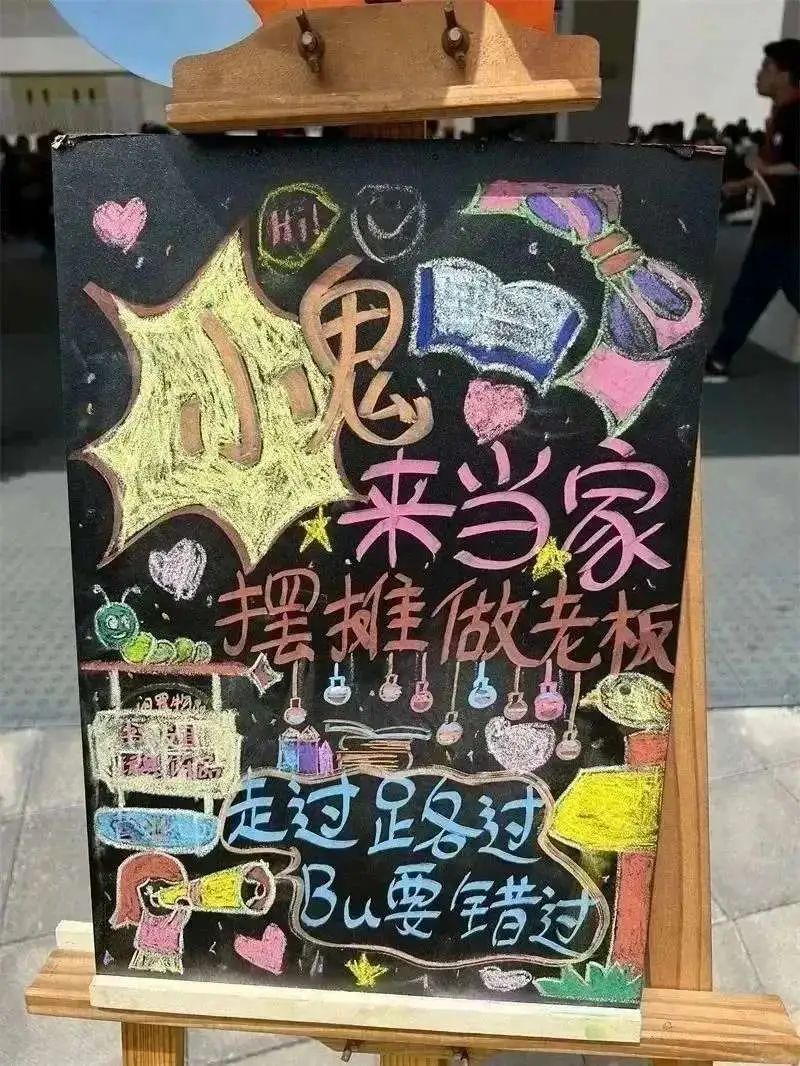 Hi!
小鬼
来当家
摆摊做老板
走过路过
Bu要错过